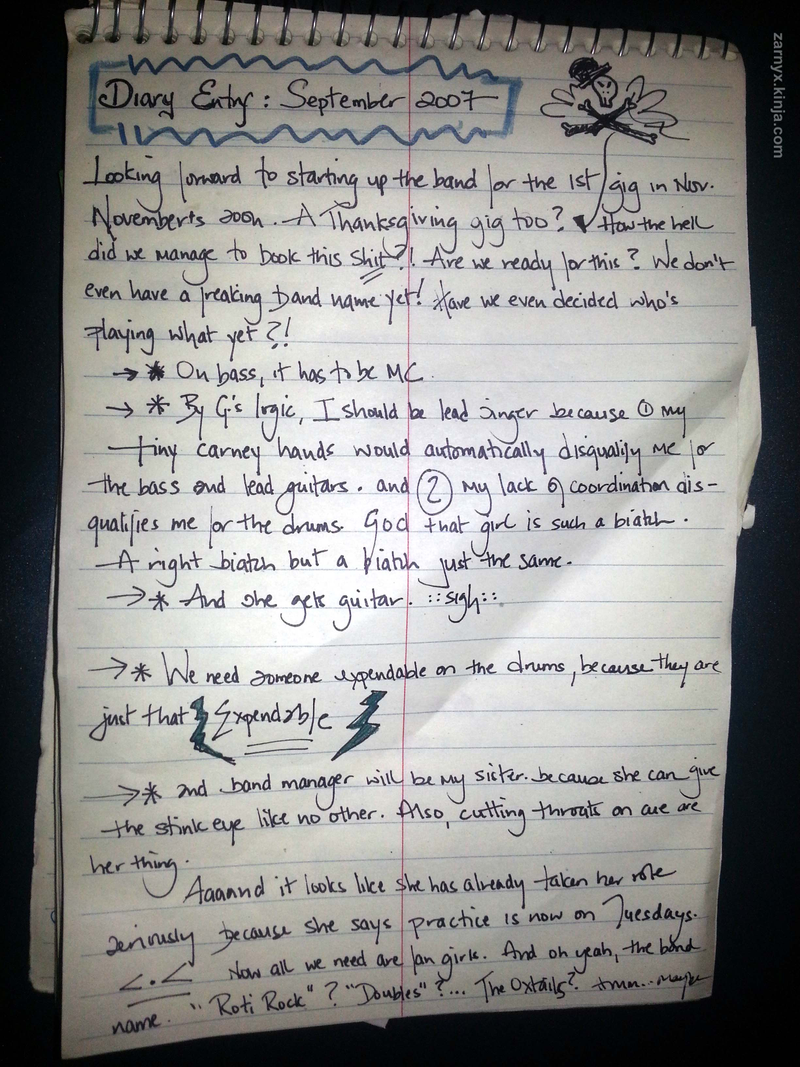 zarnyx.kinja.com
Diary Entry: September 2007
Looking forward to starting up the band for the 1st gig in Nov.
November's soon. A Thanksgiving gig too? How the hell
did we manage to book this shit?! Are we ready for this? We don't
even have a freaking band name yet! Have we even decided who's
playing what yet?!
→ * On bass, it has to be MC.
→ * By G's logic, I should be lead singer because ① my
tiny carney hands would automatically disqualify me for
the bass and lead guitars. and ② my lack of coordination dis-
qualifies me for the drums. God that girl is such a biatch.
A right biatch but a biatch just the same.
→ * And she gets guitar. ::sigh::
→ * We need someone expendable on the drums, because they are
just that Expendable
→ * and band manager will be my sister. because she can give
the stink eye like no other. Also, cutting throats on cue are
her thing.
Aaaand it looks like she has already taken her role
seriously because she says practice is now on Tuesdays.
<.< Now all we need are fan girls. And oh yeah, the band
name. "Roti Rock"? "Doubles"?... The Oxtails? Hmm... Maybe